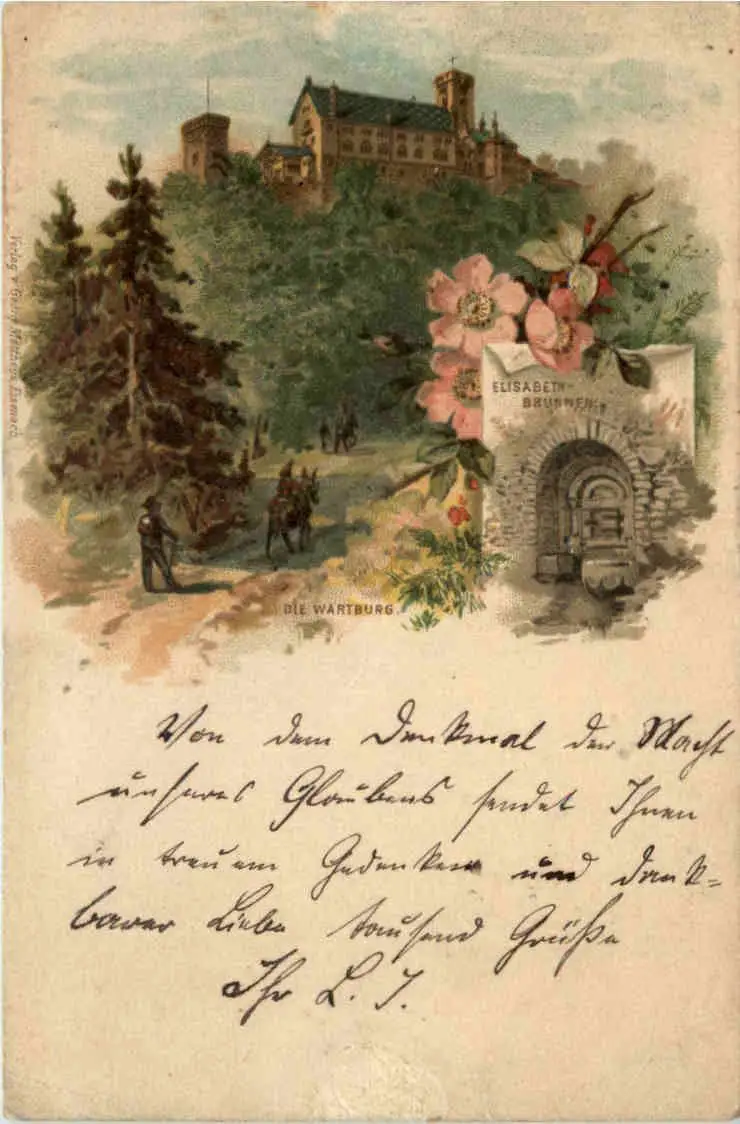 Verlag v. Georg Mattheus Eisenach.
ELISABETH-
BRUNNEN.
DIE WARTBURG.
Von dem Denkmal der Macht
unseres Glaubens sendet Ihnen
in treuem Gedenken und dank=
barer Liebe tausend Grüße
Ihr L. J.